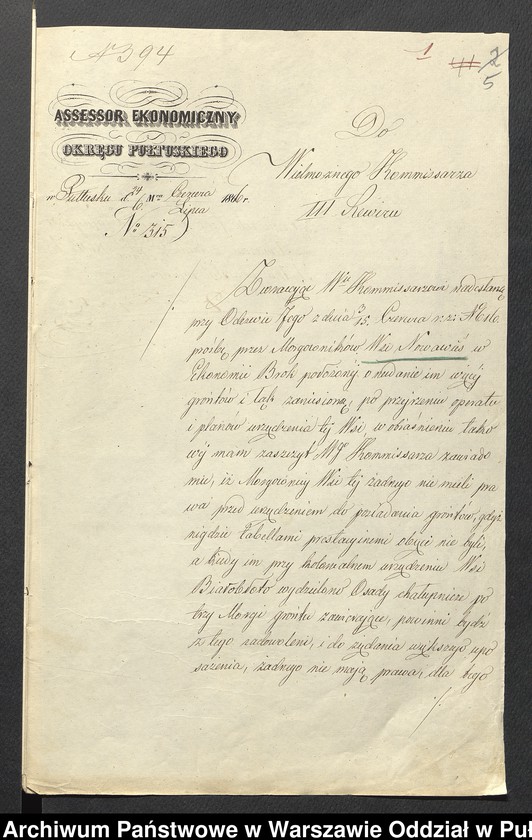 N 394
1
2
5
ASSESSOR EKONOMICZNY
OKRĘGU PUŁTUSKIEGO
w Pułtusku d. 24/6 Mca Czerwca/Lipca 1846 r.
No 315
Do
Wielmożnego Kommissarza
III Rewiru
Zwracając Wu Kommissarzowi nadesłaną
przy Odezwie Jego z dnia 3/15 Czerwca r. z: N
prośbę przez Morgowników Wsi Nowawieś w
Ekonomii Brok położonej o nadanie im więcej
gruntów i łąk zaniesioną, po przejrzeniu operatu
i planów urządzenia tej Wsi, w obiaśnieniu tako
wej mam zaszczyt WJ Kommissarza zawiado
mić, iż Morgownicy Wsi tej żadnego nie mieli pra
wa przed urządzeniem do posiadania gruntów, gdyż
nigdzie tabellami prestacyinemi obięci nie byli,
a kiedy im przy kolonialnem urządzeniu Wsi
Białebłoto wydzielono Osady chałupnicze po
trzy Morgi gruntu zawierające, powinni bydź
z tego zadowoleni, i do żądania większego upo
sażenia, żadnego nie mają prawa, dla tego
Archiwum Państwowe w Warszawie Oddział w Puł